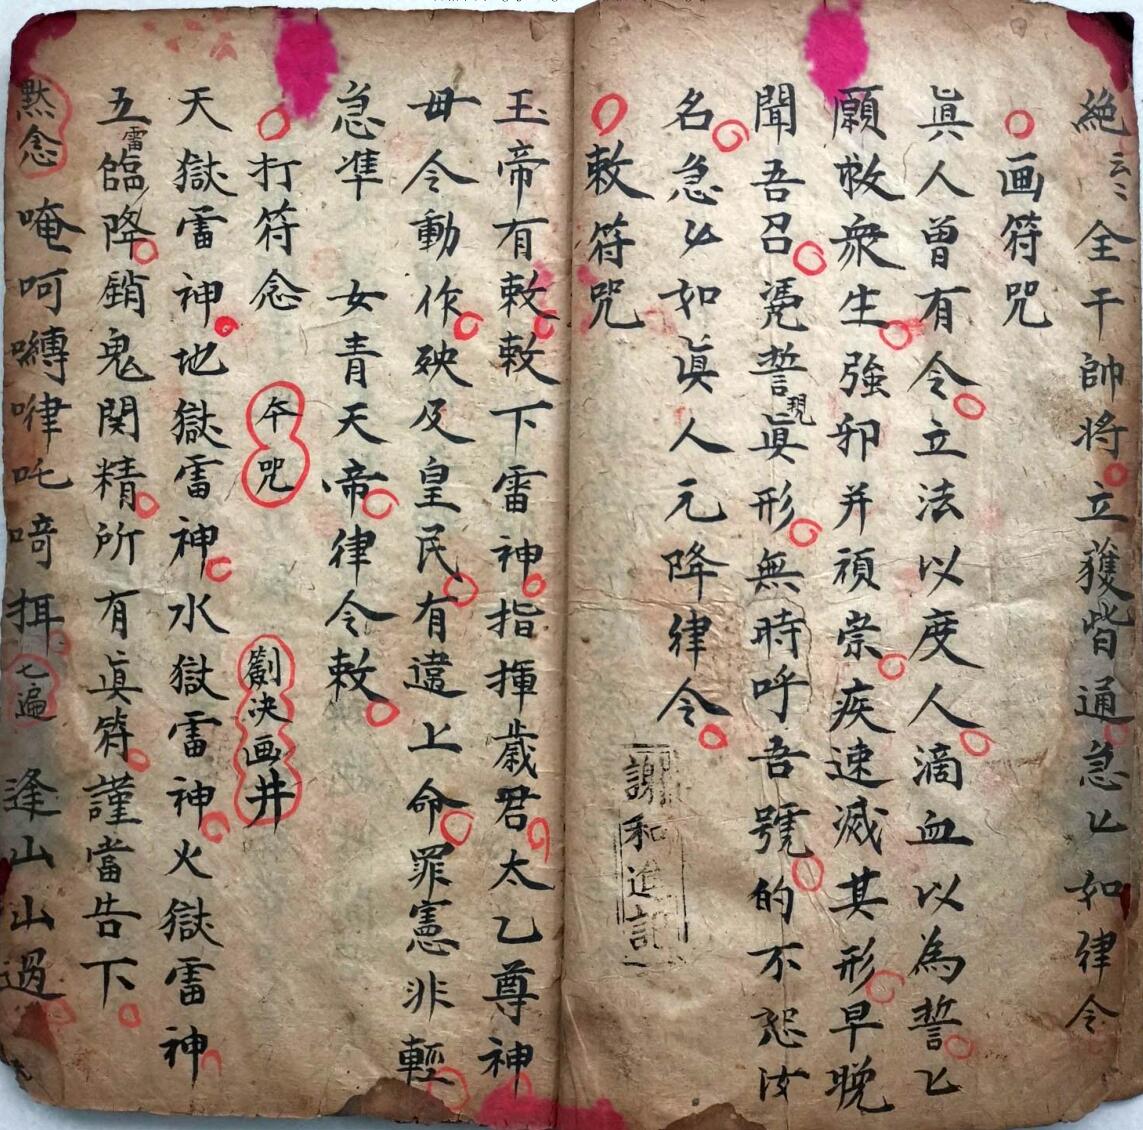 絶 全干帥将立獲皆通急匕如律令
画符咒
眞人曽有令立法以度人滴血以為誓匕
願救衆生強邪并頑祟疾速滅其形早晚
聞吾召凴誓現眞形無時呼吾號的不恕汝
名急如眞人元降律令
謝和進記
敕符咒
玉帝有敕敕下雷神指揮歳君太乙尊神
毋令動作殃及皇民有違上命罪憲非輕
急準 女青天帝律令敕
打符念 年咒 劄决画井
天獄雷神地獄雷神水獄雷神火獄雷神
五雷臨降銷鬼関精所有眞符謹當告下
黙念 唵呵嚩嘩吒㗨挕七遍 逢山山過